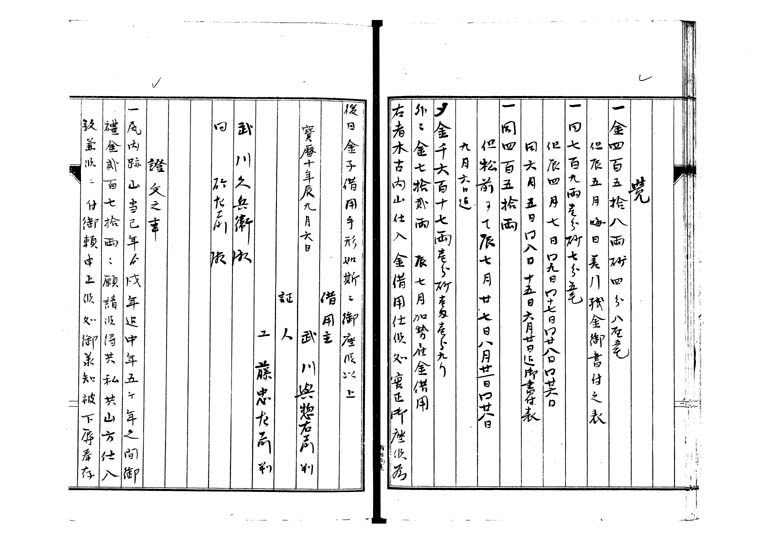 覚
一金四百五拾八両砂四分八厘五毛
但辰五月晦日美川残金御書付之表
一同七百九両壱分砂七分五毛
但辰四月七日口九日口十七日口廿八日口廿六日
同六月五日口八日口十五日六月廿日迄御書付表
一同四百五拾両
但松前ニて辰七月廿七日八月廿一日口廿八日
九月六日迄
〆金千六百十七両壱分砂
外ニ金七拾弐両 辰七月加勢屋金借用
右者木古内山仕入金借用仕候如実正御座候為
後日金子借用手形如斯ニ御座候以上
借用主
寶暦十年辰九月六日 武川與惣右衛門判
証人
工藤忠左衛門判
武川久兵衛殿
同 殿
證文之事
一尻内跡山当巳年ゟ戌年迄中年五ヶ年之間御
禮金弐百七拾両ニ願請候得共私共山方仕入
致兼候ニ付御頼申上候如御承知被下辱奉存